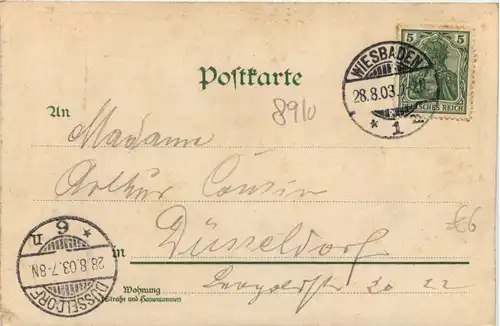 5 5
WIESBADEN
28.8.03.
* 1 m
DEUTSCHES REICH
Postkarte
8910
An
Madame
Arthur Cousin
£6
Düsseldorf
in
Wohnung
(Straße und Hausnummer)
DÜSSELDORF
28.8.03.7-8N
* 9 n